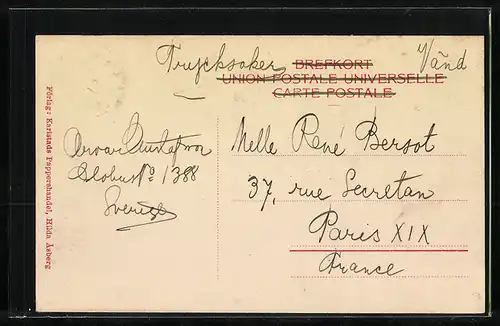 Trycksaker
Vänd
BREFKORT
UNION POSTALE UNIVERSELLE
CARTE POSTALE
Gustafsson
Globus No 1388
Sverige
Melle René Bersot
37, rue Secretan
Paris XIX
France
Förlag: Karlstads Pappershandel, Hilda Åsberg